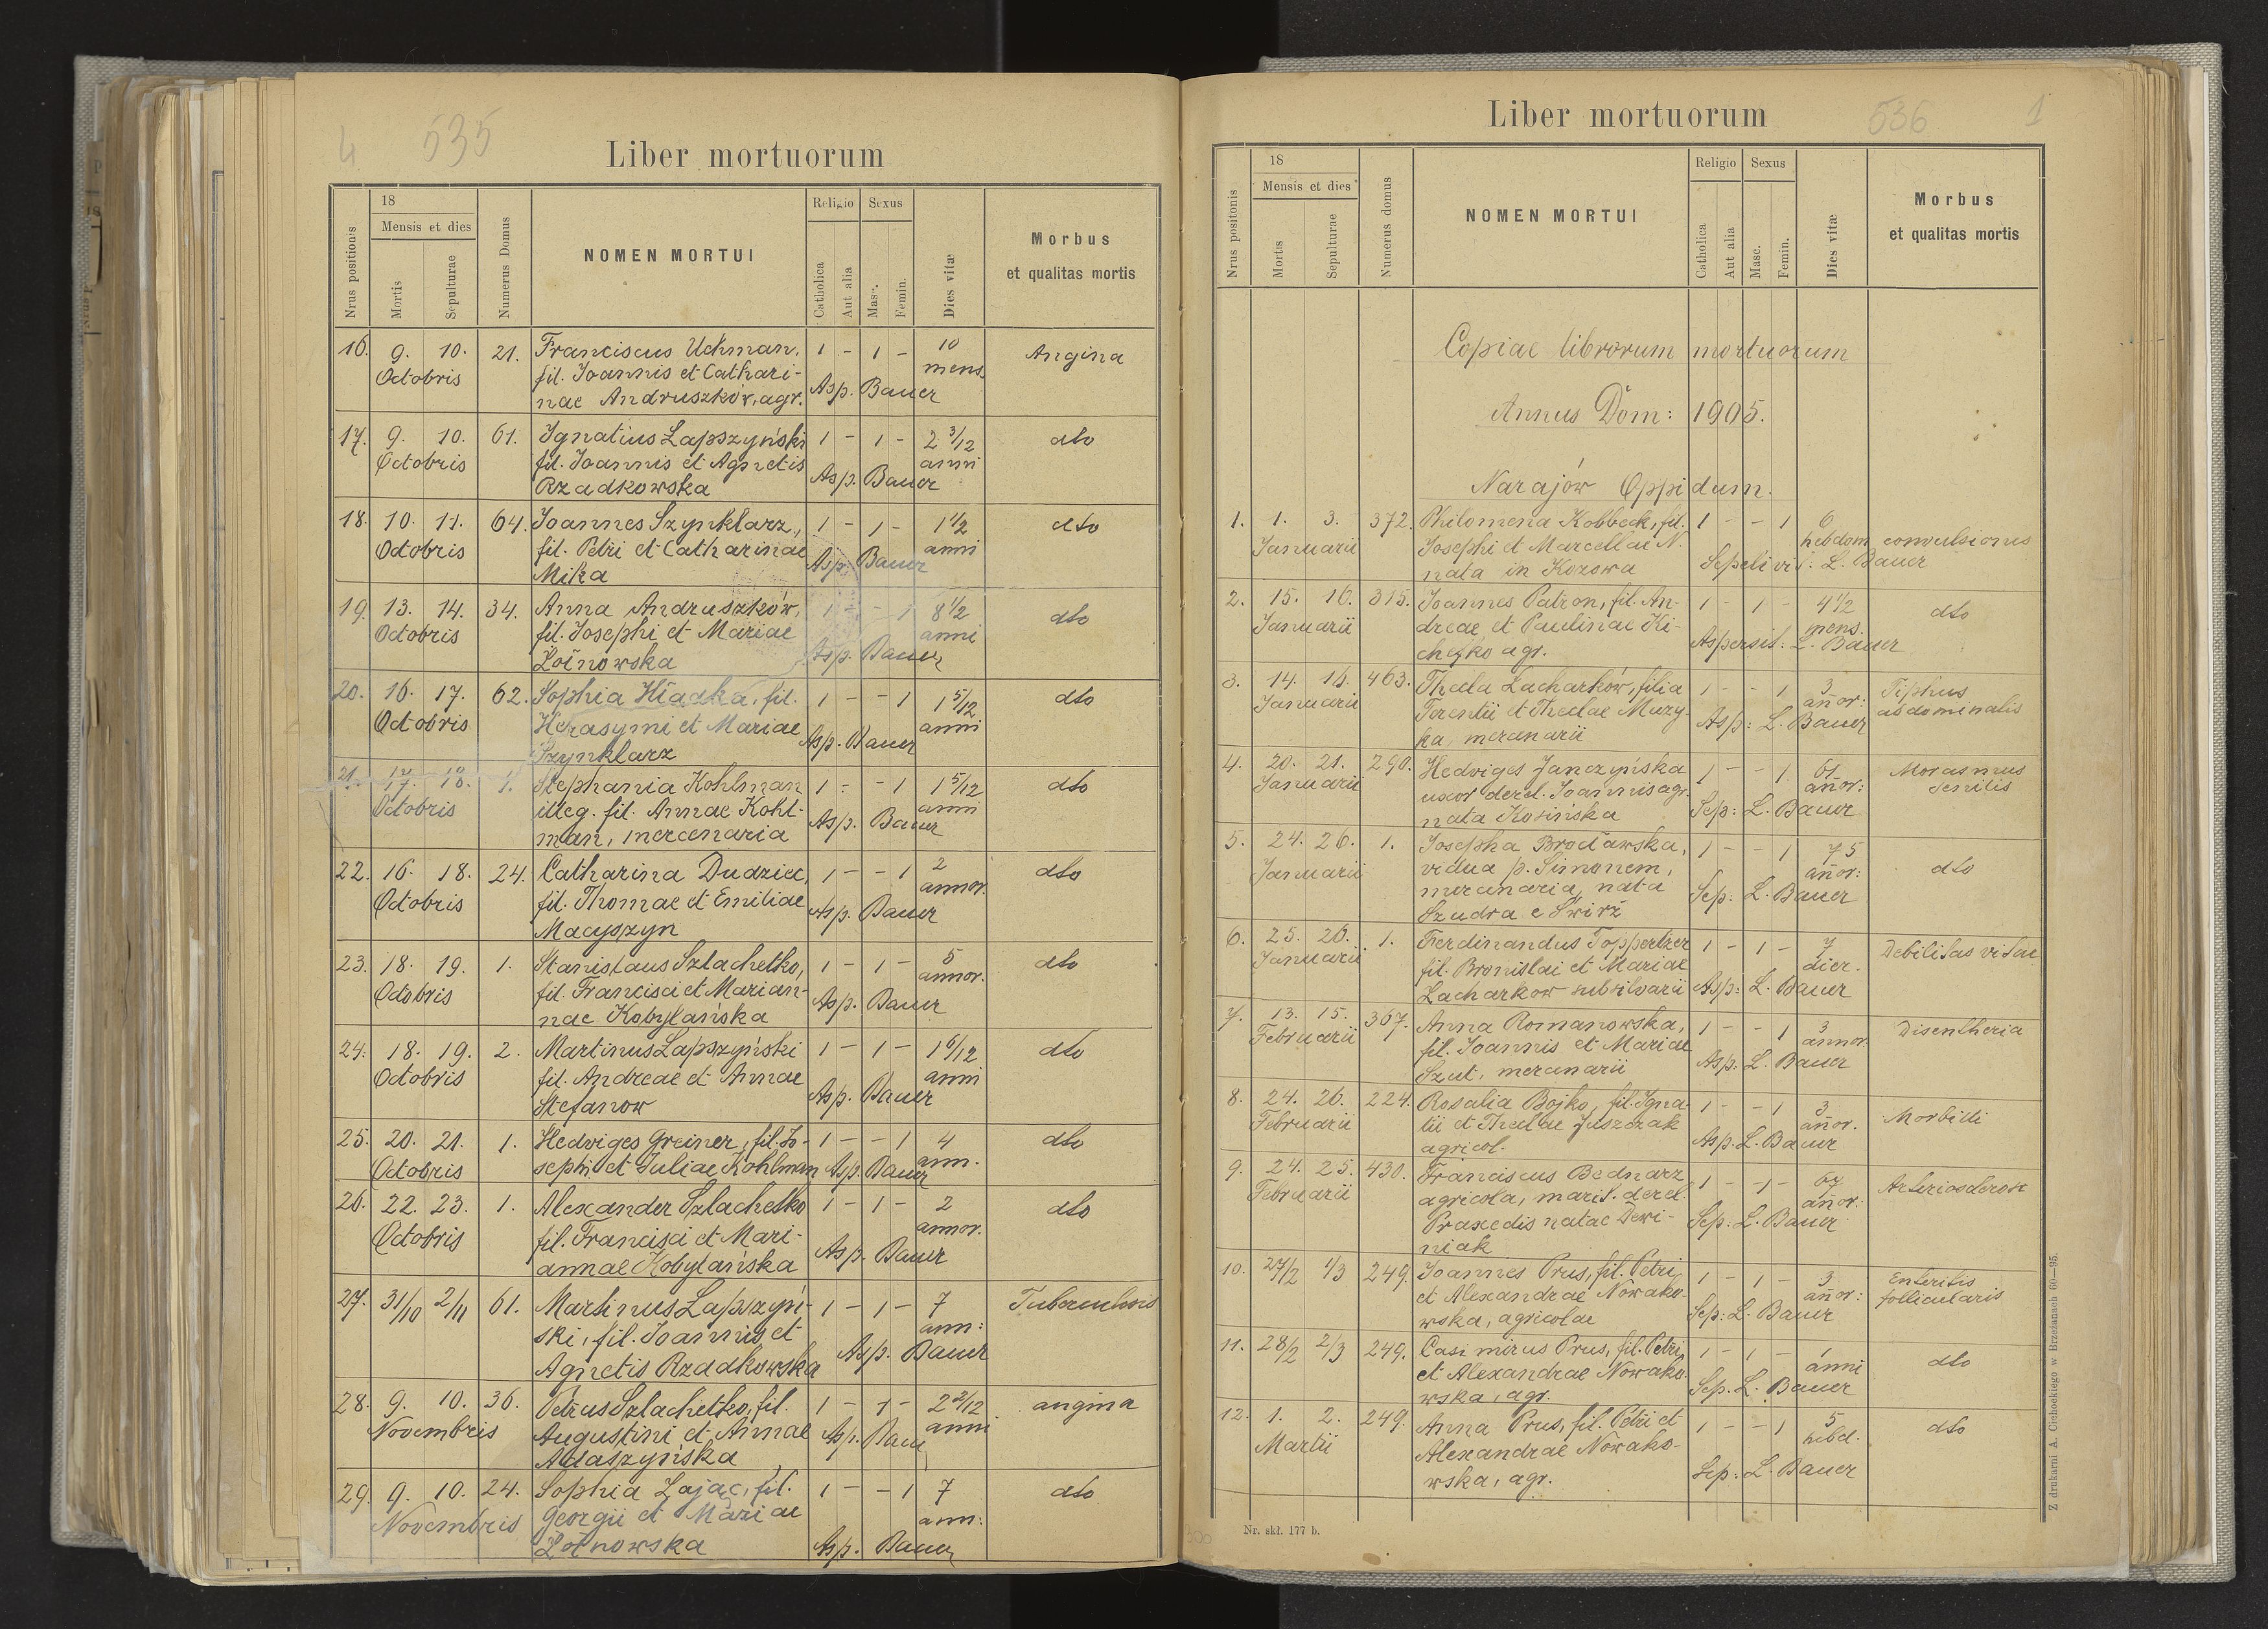 4 535
Liber mortuorum
Nrus positionis
18
Mensis et dies
Mortis
Sepulturae
Numerus Domus
NOMEN MORTUI
Religio
Catholica
Aut alia
Sexus
Masc.
Femin.
Dies vitæ
Morbus
et qualitas mortis
16. 9. 10. 21. Franciscus Uchman, 1 - 1 - 10 Angina
Octobris fil. Joannis et Cathari- mens.
nae Andruszków, agr. Asp. Bauer
17. 9. 10. 61. Ignatius Lapszyński 1 - 1 - 2 3/12 dto
Octobris fil. Joannis et Agnetis anni
Rzadkowska Asp. Bauer
18. 10. 11. 64. Joannes Szynklarz, 1 - 1 - 1 1/2 dto
Octobris fil. Petri et Catharinae anni
Mika Asp. Bauer
19. 13. 14. 34. Anna Andruszków, 1 - - 1 8 1/2 dto
Octobris fil. Josephi et Mariae anni
Żołnowska Asp. Bauer
20. 16. 17. 62. Sophia Hładka, fil. 1 - - 1 1 5/12 dto
Octobris Herasymi et Mariae anni
Szynklarz Asp. Bauer
21. 17. 18. 1. Stephania Kohlman 1 - - 1 1 5/12 dto
Octobris illeg. fil. Annae Kohl- anni
man, mercenaria Asp. Bauer
22. 16. 18. 24. Catharina Dudzicz, 1 - - 1 2 dto
Octobris fil. Thomae et Emiliae annor.
Macyszyn Asp. Bauer
23. 18. 19. 1. Stanislaus Szlachetko, 1 - 1 - 5 dto
Octobris fil. Francisci et Marian- annor.
nae Kobylańska Asp. Bauer
24. 18. 19. 2. Martinus Lapszyński 1 - 1 - 1 6/12 dto
Octobris fil. Andreae et Annae anni
Stefanow Asp. Bauer
25. 20. 21. 1. Hedviges Greiner, fil. Jo- 1 - - 1 4 dto
Octobris sephi et Juliae Kohlman Asp. Bauer ann.
26. 22. 23. 1. Alexander Szlachetko 1 - 1 - 2 dto
Octobris fil. Francisci et Mari- annor.
annae Kobylańska Asp. Bauer
27. 31/10 2/11 61. Martinus Lapszyń- 1 - 1 - 7 Tuberculosis
ski, fil. Joannis et ann:
Agnetis Rzadkowska Asp. Bauer
28. 9. 10. 36. Petrus Szlachetko, fil. 1 - 1 - 2 2/12 angina
Novembris Augustini et Annae anni
Ałłaszyńska Asp. Bauer
29. 9. 10. 24. Sophia Zając, fil. 1 - - 1 7 dto
Novembris Georgii et Mariae ann:
Żołnowska Asp. Bauer
Liber mortuorum 536 1
Nrus positonis
18
Mensis et dies
Mortis
Sepulturae
Numerus domus
NOMEN MORTUI
Religio
Catholica
Aut alia
Sexus
Masc.
Femin.
Dies vitæ
Morbus
et qualitas mortis
Copiae librorum mortuorum
Annus Dom: 1905.
Narajów Oppidum.
1. 1. 3. 372. Philomena Kobbeck, fil. 1 - - 1 6
Januarii Josephi et Marcellae N. hebdom convulsiones
nata in Kozowa Sepelivit: L. Bauer
2. 15. 16. 315. Joannes Patron, fil. An- 1 - 1 - 4 1/2 dto
Januarii dreae et Paulinae Ki- mens.
agr. Aspersit: L. Bauer
3. 14. 16. 463. Thecla Lacharków, filia 1 - - 1 3 Tiphus
Januarii Terentii et Theclae Muzy- añor: abdominalis
ka, mercenarii Asp: L. Bauer
4. 20. 21. 290. Hedviges Janczyńska 1 - - 1 61 Morasmus
Januarii uxor derel. Joannis agr. añor: senilis
nata Kosińska Sep: L. Bauer
5. 24. 26. 1. Josepha Brocławska, 1 - - 1 75
Januarii vidua p. Simonem, añor: dto
mercenaria, nata Sep: L. Bauer
Szudra e Świrż
6. 25. 26. 1. Ferdinandus Toppertzer 1 - 1 - 7 Debilitas vitae
Januarii fil. Bronislai et Mariae dier.
Lacharkow subsilvarii Asp: L. Bauer
7. 13. 15. 367. Anna Romanowska, 1 - - 1 3 Disentheria
Februarii fil. Joannis et Mariae annor.
Szut, mercenarii Asp: L. Bauer
8. 24. 26. 224. Rosalia Bojko, fil. Igna- 1 - - 1 3 Morbilli
Februarii tii et Theclae Juszczak añor.
agricol. Asp. L. Bauer
9. 24. 25. 430. Franciscus Bednarz 1 - 1 - 67 Arteriosclerose
Februarii agricola, marit. derel. añor:
Praxedis natae Dewi- Sep: L. Bauer
niak
10. 27/2 1/3 249. Joannes Prus, fil. Petri 1 - 1 - 3 Enteritis
et Alexandrae Nowako- añor: follicularis
wska, agricolae Sep: L. Bauer
11. 28/2 2/3 249. Casimirus Prus, fil. Petri 1 - 1 - 1 dto
et Alexandrae Nowako- anni
wska, agr. Sep. L. Bauer
12. 1. 2. 249. Anna Prus, fil. Petri et 1 - - 1 5 dto
Martii Alexandrae Nowako- hebd.
wska, agr. Sep: L. Bauer
Nr. skł. 177 b.
Z drukarni A. Cichockiego w Brzeżanach 60—95.